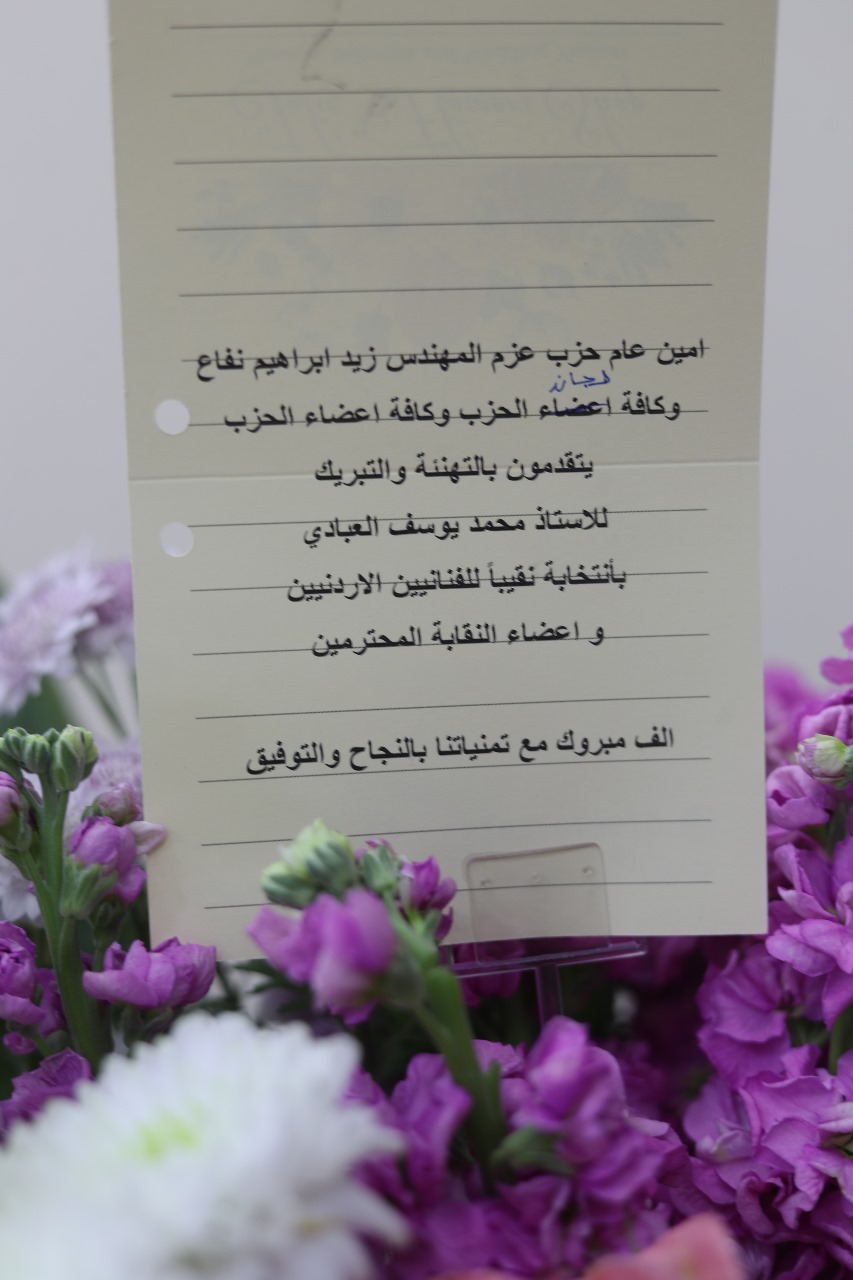 امين عام حزب عزم المهندس زيد ابراهيم نفاع
لجان
وكافة اعضاء الحزب وكافة اعضاء الحزب
يتقدمون بالتهنئة والتبريك
للاستاذ محمد يوسف العبادي
بأنتخابة نقيباً للفنانيين الاردنيين
و اعضاء النقابة المحترمين
الف مبروك مع تمنياتنا بالنجاح والتوفيق